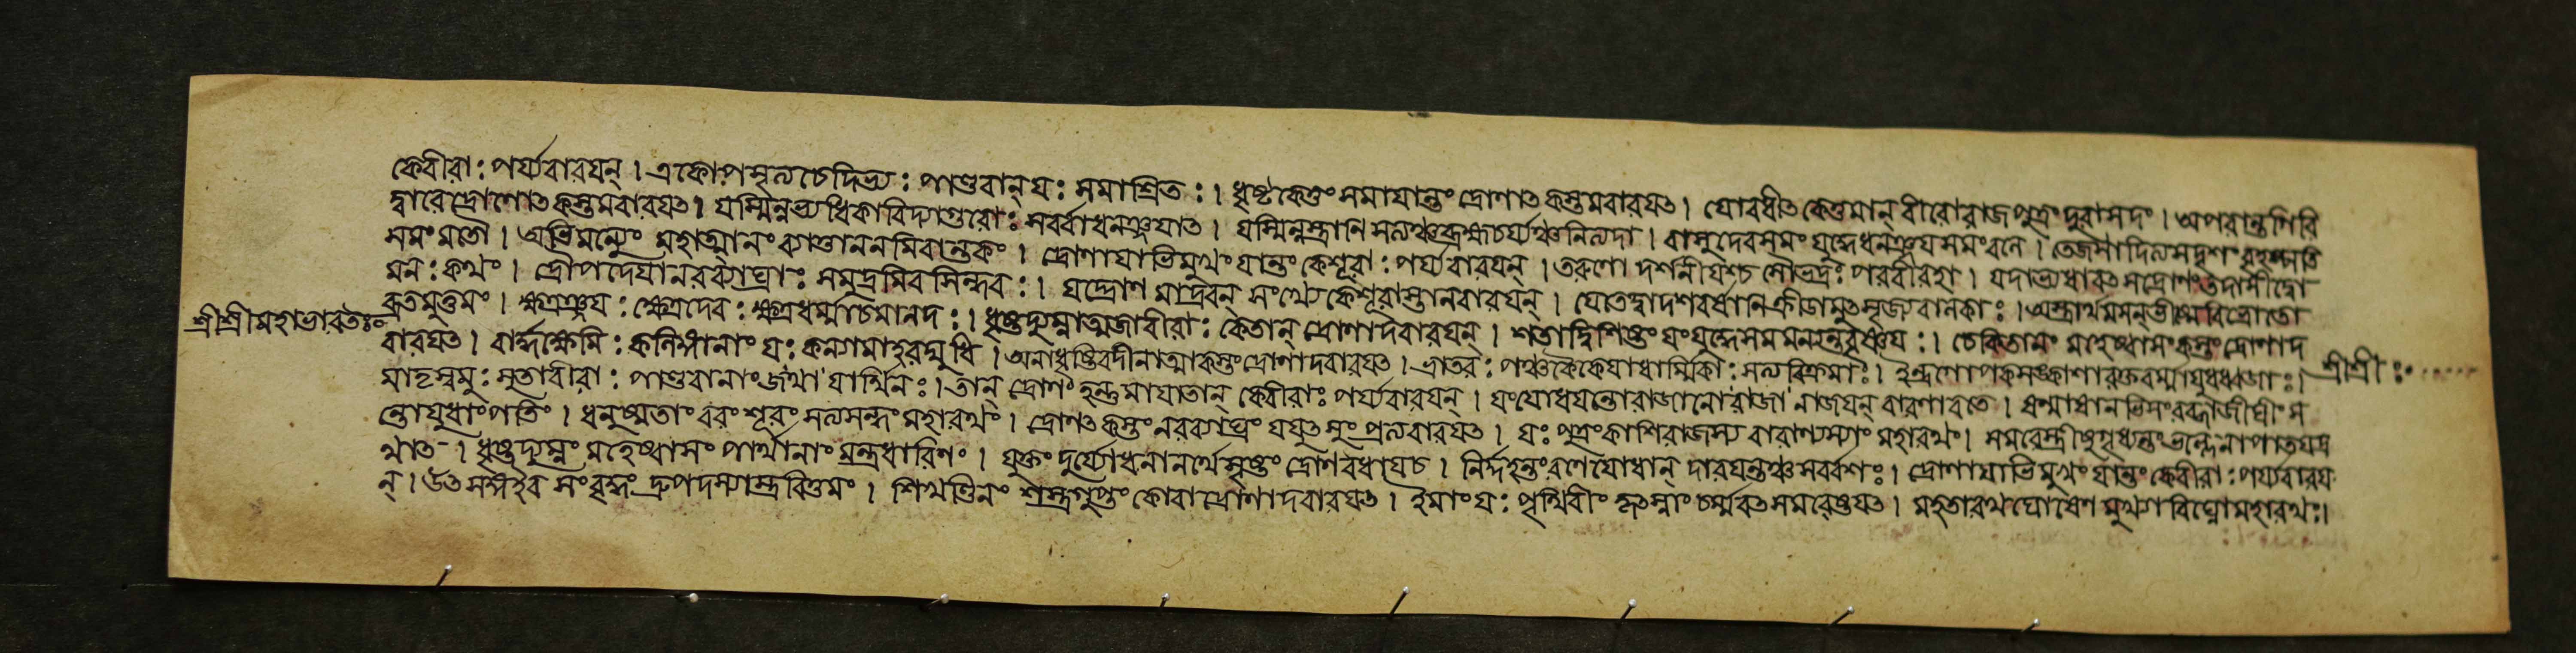 কেবীরা: পর্য্যবারযন্ । একোপসৃত্যচেদিভ্য: পাণ্ডবান্ য: সমাশ্রিত: । ধৃষ্টকেতুং সমাযান্তং দ্রোণাৎ কস্তমবারযৎ । যোবধীৎ কেতুমান্ বীরোরাজপুত্রং দুরাসদং । অপরান্তগিরি
দ্বারেদ্রোণোৎকস্তমবারযৎ । যস্মিন্নভ্যধিকাবিদ্যাগুরো: সর্ব্বেধনঞ্জযাৎ । যস্মিন্নস্ত্রাণি সত্যঞ্চব্রহ্মচর্য্যঞ্চনিত্যদা । বাসুদেবসমং যুদ্ধেধনঞ্জযসমংবলে । তেজসাদিত্যসদৃশং বৃহস্পতি
সমংমতৌ । অভিমন্যুং মহাত্মানং ব্যাত্তাননমিবান্তকং । দ্রোণাযাভিমুখং যান্তং কেশূরা: পর্য্যবারযন্ । তরুণো দর্শনীযশ্চ সৌভদ্র: পরবীরহা । যদাভ্যধাবৎ সদ্রোণং তদাসীদ্বো
মন: কথং । দ্রৌপদেযানরব্যাঘ্রা: সমুদ্রমিবসিন্ধব: । যদ্দ্রোণ মাদ্রবন্ সংখ্যেকেশূরাস্তানবারযন্ । যেতেদ্বাদশবর্ষাণি ক্রীডামুৎসৃজ্যবালকা: । অস্ত্রার্থমমসন্ ভীষ্মেবিভ্রতো
ব্রতমুত্তমং । ক্ষত্রঞ্জয: ক্ষত্রদেব: ক্ষত্রধর্ম্মাচমানদ: । ধৃষ্টদ্যুম্নাত্মজাবীরা: কেতান্ দ্রোণাদবারযন্ । শতাদ্বিশিষ্টং যংযুদ্ধেসমমন্যন্তবৃষ্ণয: । চেকিতানং মহেষ্বাসং কস্তংদ্রোণাদ
শ্রীশ্রীমহাভারতঃ
বারযৎ । বার্দ্ধক্ষেমি: কলিঙ্গানাং য: কন্যামাহরদ্যুধি । অনাধৃষ্টিরদীনাত্মাকস্তংদ্রোণাদবারযৎ । ভ্রাতর: পঞ্চকৈকেযাধার্ম্মিকা: সত্যবিক্রমা: । ইন্দ্রগোপকসঙ্কাশারক্তবর্ম্মাযুধধ্বজা: ।
শ্রীশ্রী:
মাতৃস্বসু: সুতাবীরা: পাণ্ডবানাং জযার্থিন: । তান্ দ্রোণং হন্তুমাযাতান্ কেবীরা: পর্য্যবারযন্ । যংযোধযন্তোরাজানো নাজযন্ বারণাবতে । ষণ্মাসানভিসংরব্ধাজীঘাং স
ন্তোযুধাংপতিং । ধনুষ্মতাং বরং শূরং সত্যসন্ধং মহারথং । দ্রোণাৎ কস্তং নরব্যাঘ্রং যুযুৎসুং প্রত্যবারযৎ । য: পুত্রংকাশিরাজস্য বারাণস্যাং মহারথং । সমরেস্ত্রীষুগৃধ্যন্তং ভল্লেনাপাতযদ্র
থাৎ । ধৃষ্টদ্যুম্নং মহেষ্বাসং পার্থানাং মন্ত্রধারিণং । যুক্তং দুর্য্যোধনানর্থেসৃষ্টং দ্রোণবধাযচ । নির্দ্দহন্তংরণেযোধান্ দারযন্তঞ্চসর্ব্বশ: । দ্রোণাযাভিমুখং যান্তং কেবীরা: পর্য্যবারয
ন্ । উৎসঙ্গইব সংবৃদ্ধং দ্রুপদস্যাস্ত্রবিত্তমং । শিখণ্ডিনং শস্ত্রগুপ্তং কোবাদ্রোণাদবারযৎ । ইমাং য: পৃথিবীং কৃৎস্নাং চর্ম্মবৎসমবেষ্টযৎ । মহতারথঘোষেণ মুখ্যাবিঘ্নোমহারথ: ।